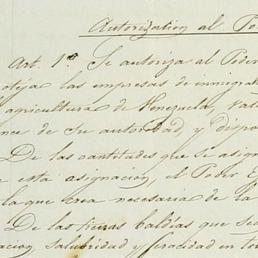 Autorizacion al Po
Art. 1º Se autoriza al Poder
oteja las empresas de inmigra
agricultura de Venezuela, val
nce de su autoridad, y dispo
De las cantidades que se asign
esta asignacion, el Poder E
la que crea necesaria de la
De las tierras baldias que se
acion, salubridad y feracidad en to